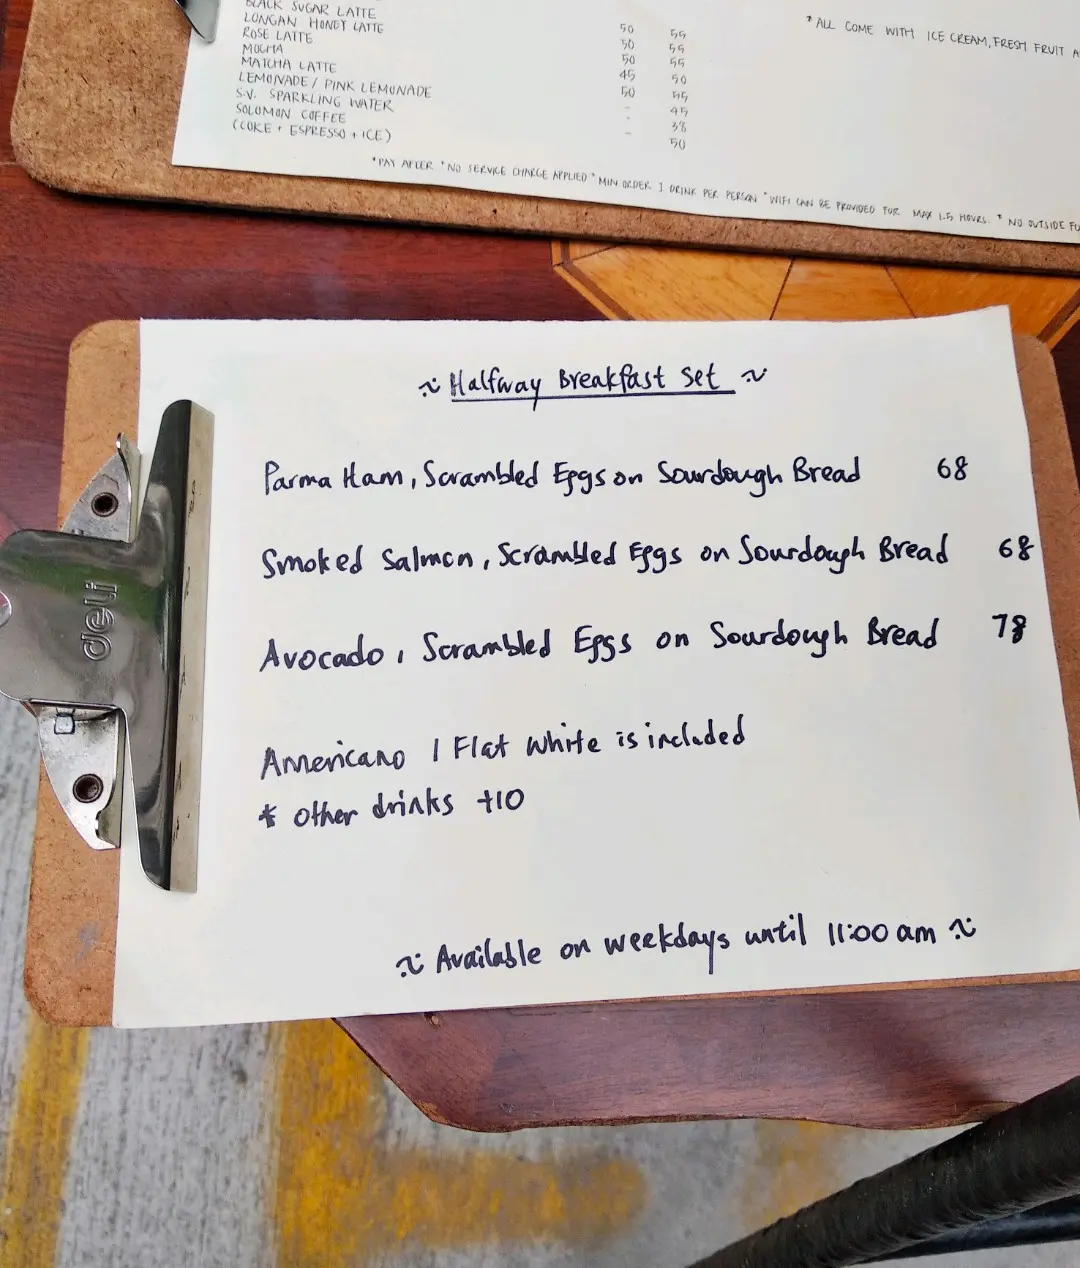 BLACK SUGAR LATTE 50 55
LONGAN HONEY LATTE 50 55
ROSE LATTE 50 55
MOCHA 45 50
MATCHA LATTE 50 55
LEMONADE / PINK LEMONADE - 45
S.V. SPARKLING WATER - 38
SOLOMON COFFEE 50
(COKE + ESPRESSO + ICE)
* ALL COME WITH ICE CREAM, FRESH FRUIT
*PAY AFTER *NO SERVICE CHARGE APPLIED *MIN ORDER 1 DRINK PER PERSON *WIFI CAN BE PROVIDED FOR MAX 1.5 HOURS. * NO OUTSIDE
~ Halfway Breakfast Set ~
Parma Ham, Scrambled Eggs on Sourdough Bread 68
Smoked Salmon, Scrambled Eggs on Sourdough Bread 68
Avocado, Scrambled Eggs on Sourdough Bread 78
Americano / Flat White is included
* other drinks +10
~ Available on weekdays until 11:00 am ~
deli